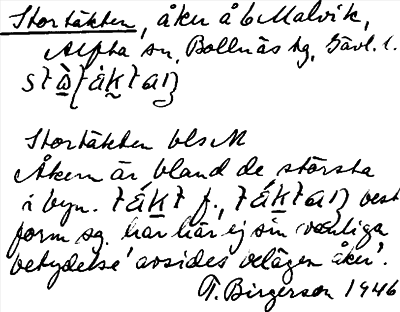 Stortäkten, åker å b Malvik,
Alfta sn, Bollnäs tg, Gävl. l.

Stortäkten bls M
Åkern är bland de största
i byn. f., best
form sg. har här ej sin vanliga
betydelse 'avsides belägen åker'.
T. Birgerson 1946